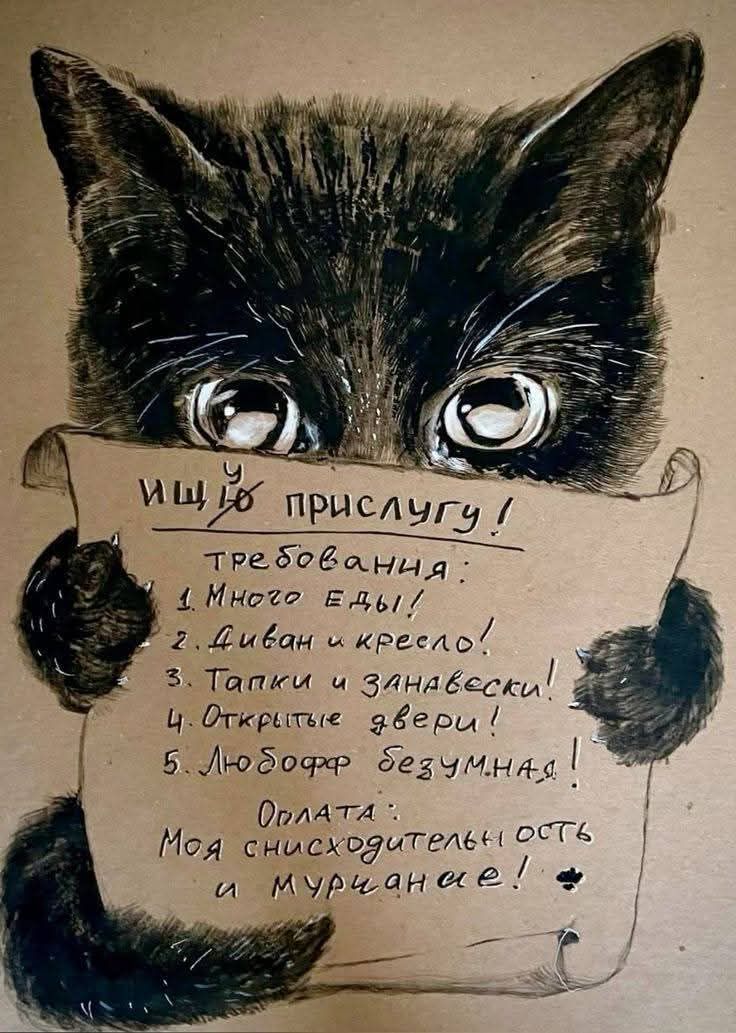 ищу прислугу!
требования:
1. Много еды!
2. Диван и кресло!
3. Тапки и занавески!
4. Открытые двери!
5. Любофф безумная!
Оплата:
Моя снисходительность
и мурчание!